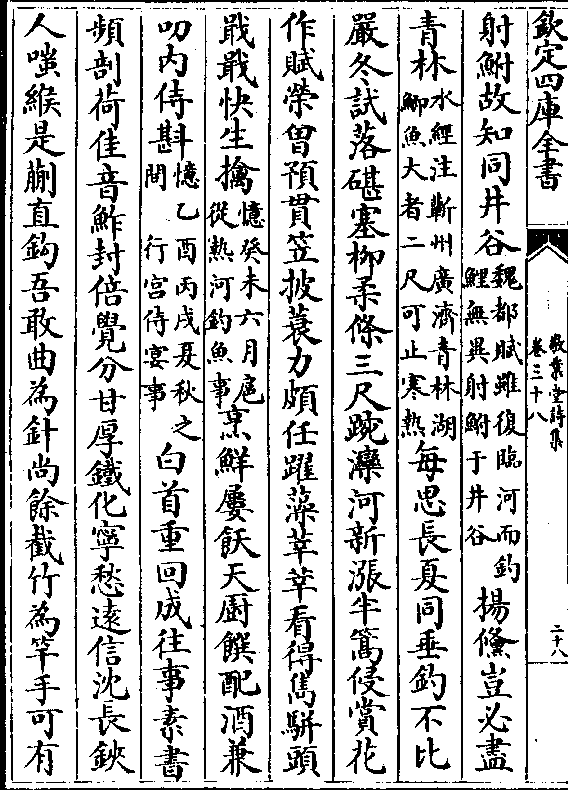 欽定四庫全書
敬業堂詩集
卷三十八
二十八
射鮒故知同井谷魏都賦雖復臨河而釣鯉無異射鮒于井谷揚鯈豈必盡
青林水經注蘄州廣濟青林湖鯽魚大者二尺可止寒熱每思長夏同垂釣不比
嚴冬試落碪塞柳柔條三尺踠灤河新漲半篙侵賞花
作賦榮曽預貫笠披蓑力頗任躍藻莘莘看得雋駢頭
戢戢快生擒憶癸未六月扈從熱河釣魚事烹鮮屢飫天厨饌配酒兼
叨内侍斟憶乙酉丙戌夏秋之間行宮侍宴事白首重回成往事素書
頻剖荷佳音鮓封倍覺分甘厚鐵化寧愁遠信沈長鋏
人嗤緱是蒯直鈎吾敢曲為針尚餘截竹為竿手可有